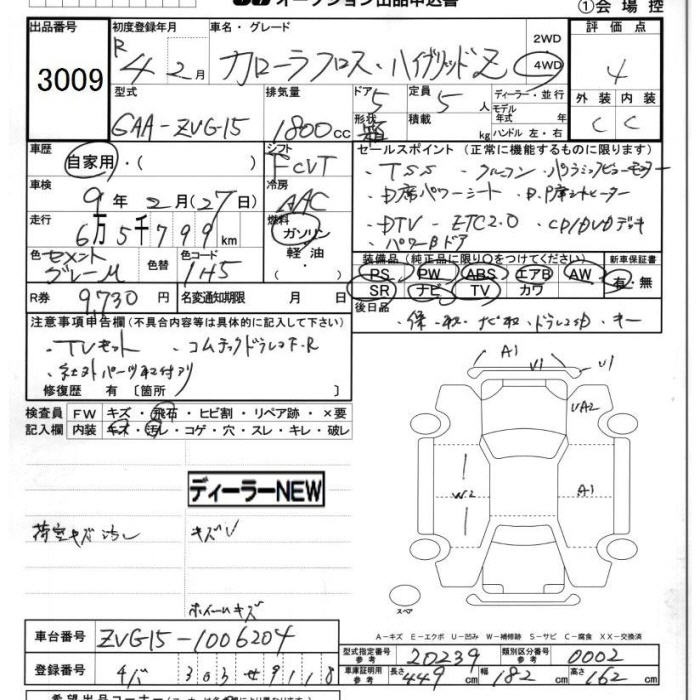 オークション出品申込書
①会場控
出品番号
3009
初度登録年月
R4 2月
車名・グレード
カローラクロス・ハイブリッドZ
2WD
4WD
評価点
4
型式
6AA-ZVG15
排気量
1800cc
ドア 5
形状
定員 5人
積載 kg
ディーラー・並行
モデル
年式 年
ハンドル 左・右
外装 内装
C C
車歴
自家用・( )
シフト
FCVT
セールスポイント (正常に機能するものに限ります)
・TSS ・クルコン ・パノラミックビューモニター
・D席パワーシート ・D.P席シートヒーター
・DTV ・ETC2.0 ・CD/DVDデッキ
・パワーBドア
車検
9年2月(27日)
冷房
AAC
走行
6万5千799km
燃料
ガソリン
軽油
( )
色 セメントグレーM
色替
色コード
1H5
装備品 (純正品に限り○をつけてください)
新車保証書
PS PW ABS エアB AW
SR ナビ TV カワ
有・無
R券 9,730円
名変通知期限 月 日
後日品
・保・取・ナビ取・ドラレコ取・キー
注意事項申告欄 (不具合内容等は具体的に記入して下さい)
・TVキット ・コムテックドラレコF.R
・社外パーツ取付有り
修復歴 有 〔箇所 〕
検査員
記入欄
FW キズ・飛石・ヒビ割・リペア跡・×要
内装 キズ・汚レ・コゲ・穴・スレ・キレ・破レ
ディーラーNEW
荷室キズ汚れ
キズU
ホイールキズ
(A1 )
U1
U1
UA2
W2
A1
スペア
A-キズ E-エクボ U-凹み W-補修跡 S-サビ C-腐食 XX-交換済
車台番号
ZVG15-1006204
登録番号
303 せ 9118
型式指定番号
参考
20239
類別区分番号
参考
0002
車庫証明用
参考
長さ 449
幅 182
高さ 162
cm